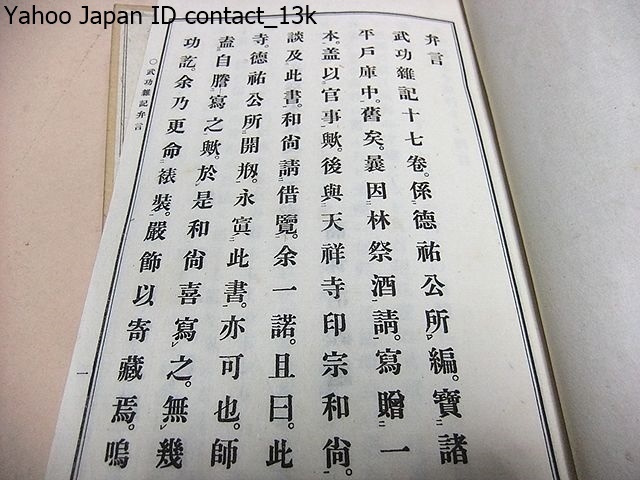 Yahoo Japan ID contact_13k
弁言
武功雜記十七卷。係德祐公所編。寶諸
平戶庫中。舊矣。曩因林祭酒請。寫贈一
本。蓋以官事歟。後與天祥寺印宗和尙。
談及此書。和尙請借覽。余一諾。且曰。此
寺。德祐公所開剏。永寘此書。亦可也。師
盍自謄寫之歟。於是和尙喜寫之。無幾
功訖。余乃更命裱裝。嚴飾以寄藏焉。嗚
〇武功雜記弁言
一